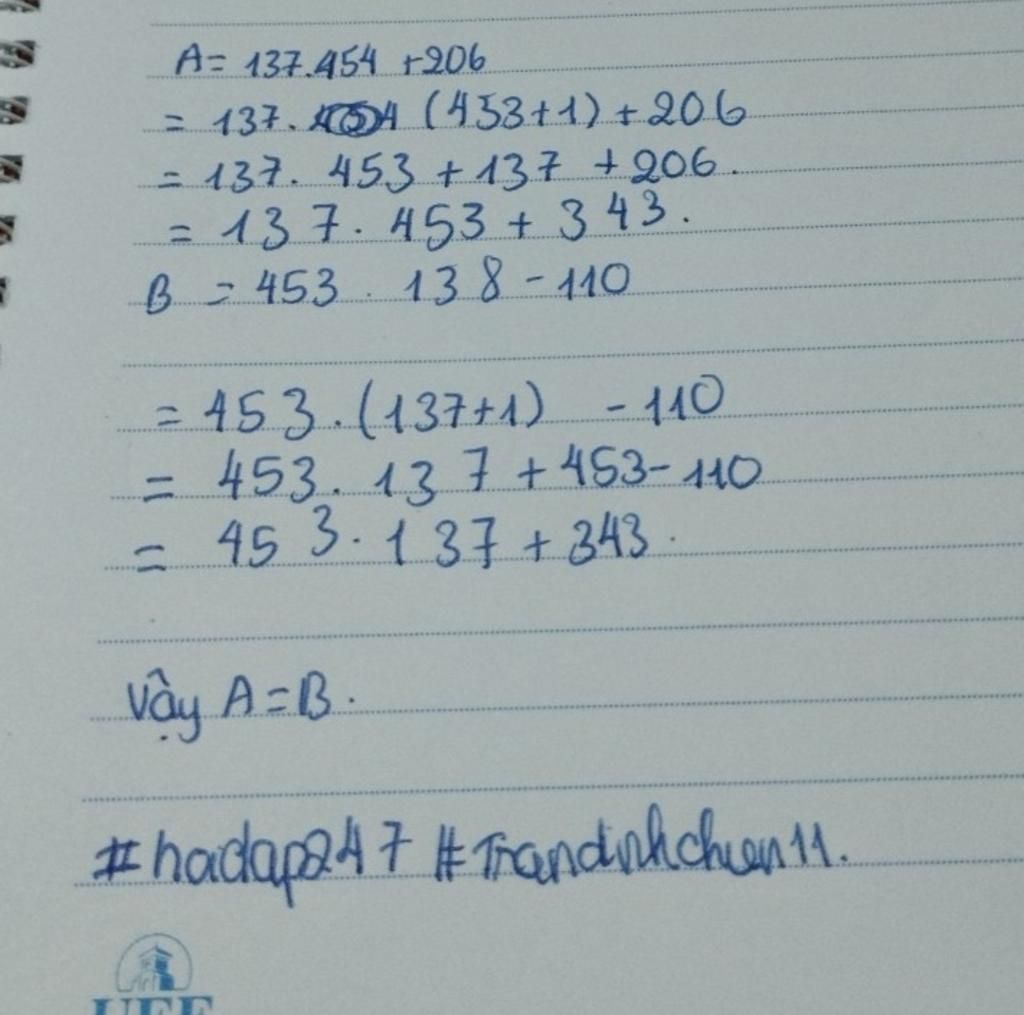 A = 137.454 + 206
= 137. (453+1) + 206
= 137. 453 + 137 + 206.
= 137. 453 + 343.
B = 453. 138 - 110
= 453.(137+1) - 110
= 453. 137 + 453 - 110
= 453. 137 + 343.
Vậy A = B.
#hadap247 #Trandinhchien11.
UEF